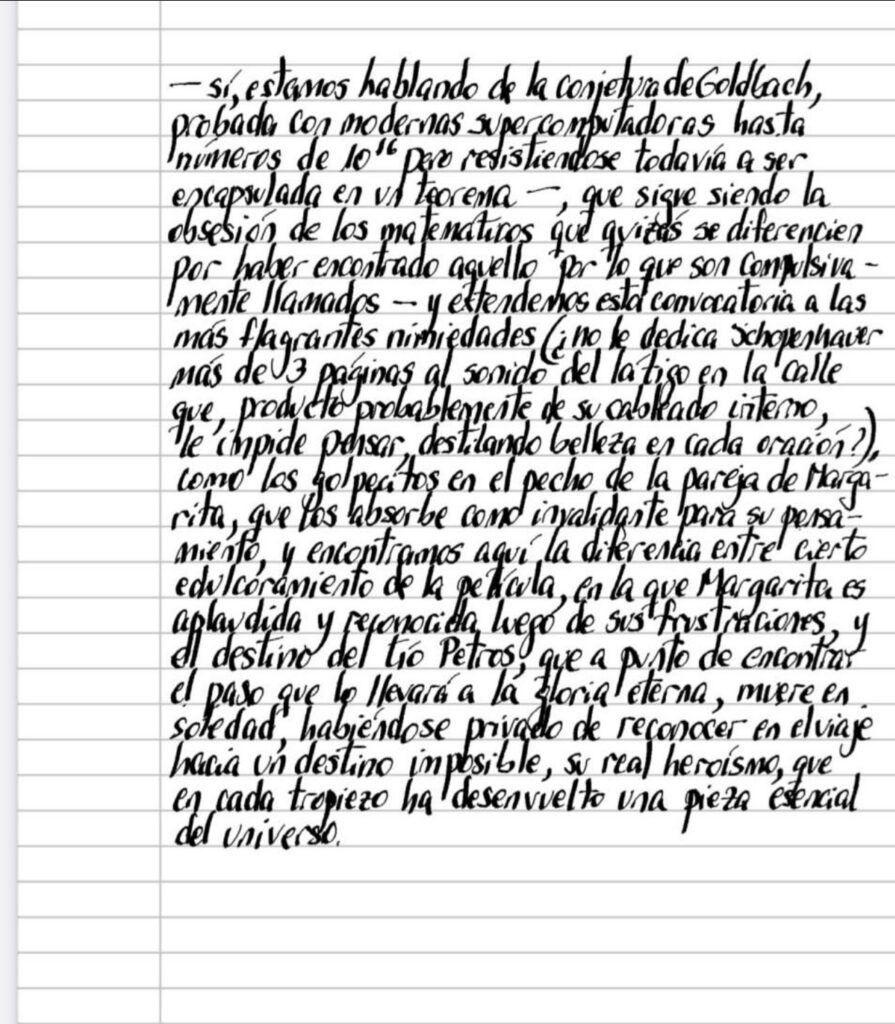 — sí, estamos hablando de la conjetura de Goldbach,
probada con modernas supercomputadoras hasta
números de 10¹⁶ pero resistiendose todavía a ser
encapsulada en un teorema —, que sigue siendo la
obsesión de los matemáticos que quizás se diferencien
por haber encontrado aquello por lo que son compulsiva-
mente llamados — y extendemos esta convocatoria a las
más flagrantes nimiedades (¿no le dedica Schopenhauer
más de 3 páginas al sonido del látigo en la calle
que, producto probablemente de su cableado interno,
le impide pensar, destilando belleza en cada oración?),
como los golpecitos en el pecho de la pareja de Marga-
rita, que los absorbe como invalidante para su pensa-
miento, y encontramos aquí la diferencia entre cierto
edulcoramiento de la película, en la que Margarita es
aplaudida y reconocida luego de sus frustraciones, y
el destino del tío Petros, que a punto de encontrar
el paso que lo llevará a la gloria eterna, muere en
soledad, habiéndose privado de reconocer en el viaje
hacia un destino imposible, su real heroísmo, que
en cada tropiezo ha desenvuelto una pieza esencial
del universo.